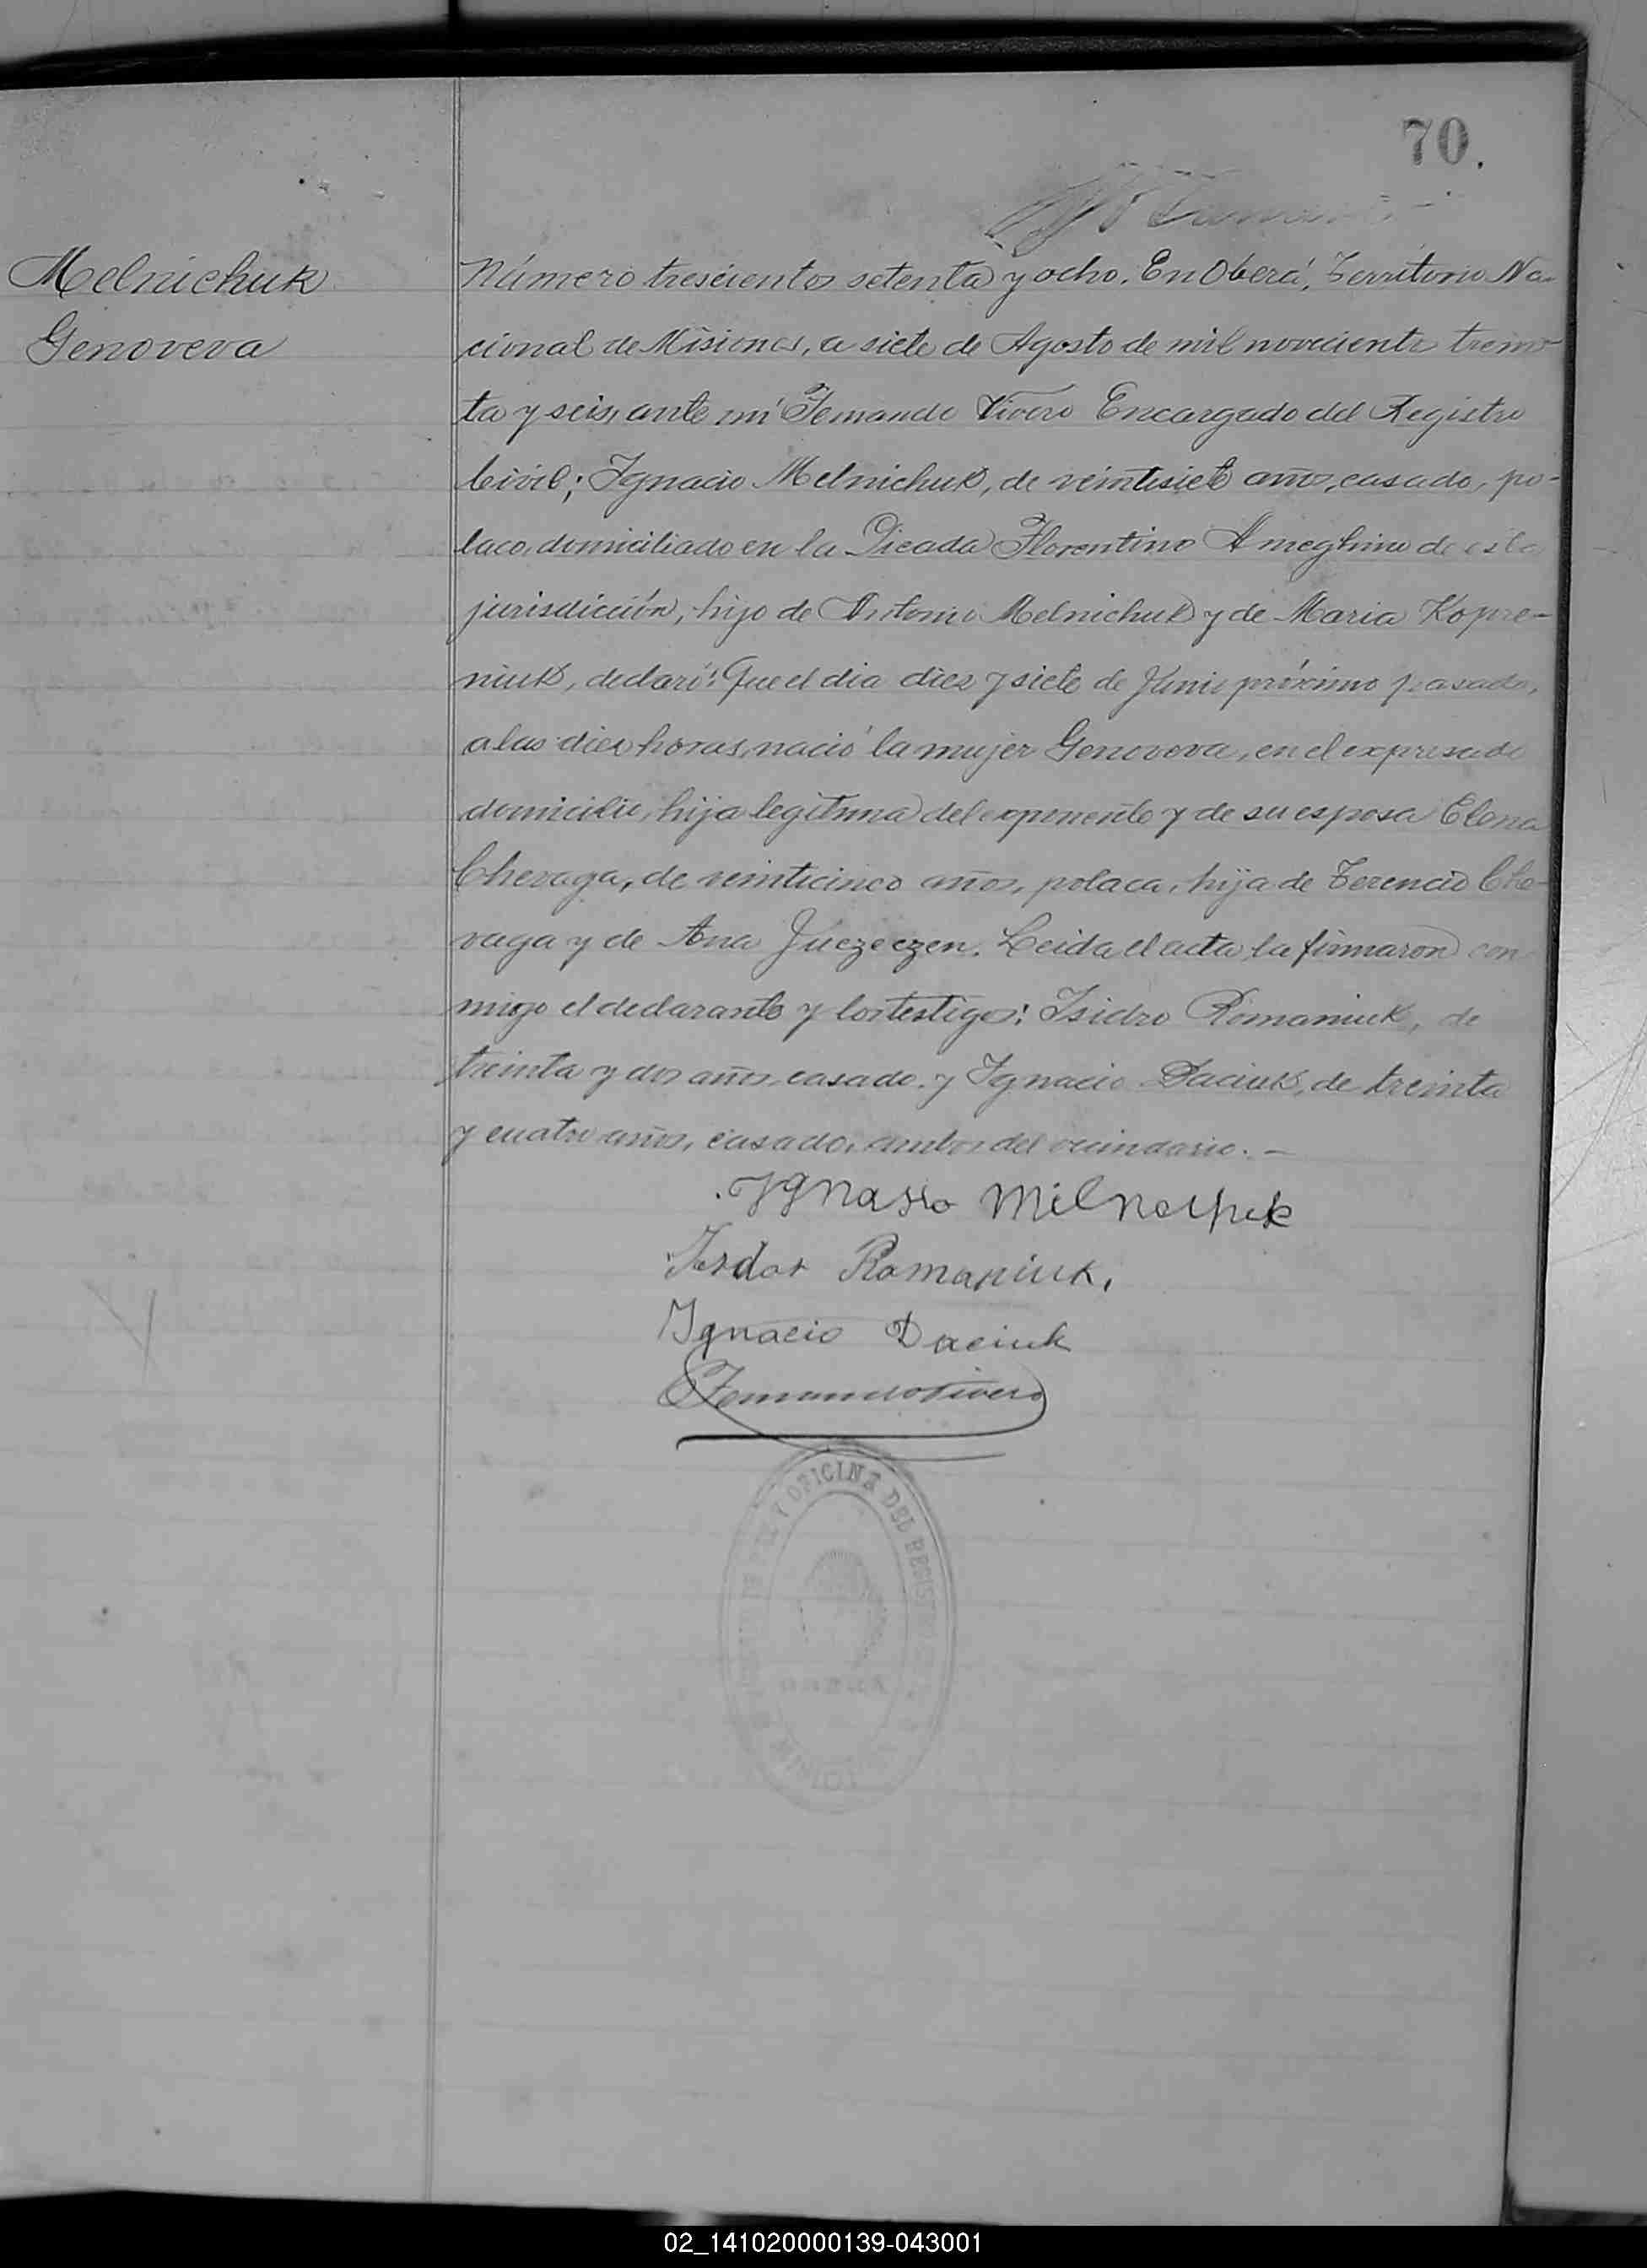 70.
Melnichuk
Genoveva
Número trescientos setenta y ocho. En Oberá, Territorio Na-
cional de Misiones, a siete de Agosto de mil novecientos trein-
ta y seis, ante mi Fernando Vivero Encargado del Registro
Civil; Ignacio Melnichuk, de veintisiete años, casado, po-
laco, domiciliado en la Picada Florentino Ameghino de esta
jurisdicción, hijo de Antonio Melnichuk y de Maria Kopre-
niuk, declaró: Que el dia diez y siete de Junio próximo pasado,
a las diez horas, nació la mujer Genoveva, en el expresado
domicilio, hija legitima del exponente y de su esposa Elena
Chevaga, de veinticinco años, polaca, hija de Terencio Che-
vaga y de Ana Juczeczen. Leida el acta la firmaron con
migo el declarante y los testigos: Isidro Romaniuk, de
treinta y dos años, casado y Ignacio Daciuk, de treinta
y cuatro años, casado, ambos del vecindario.-
Ignasio Milnechuk
Isdor Romaniuk,
Ignacio Daciuk
Fernando Vivero
OFICINA DEL REGISTRO
02_141020000139-043001